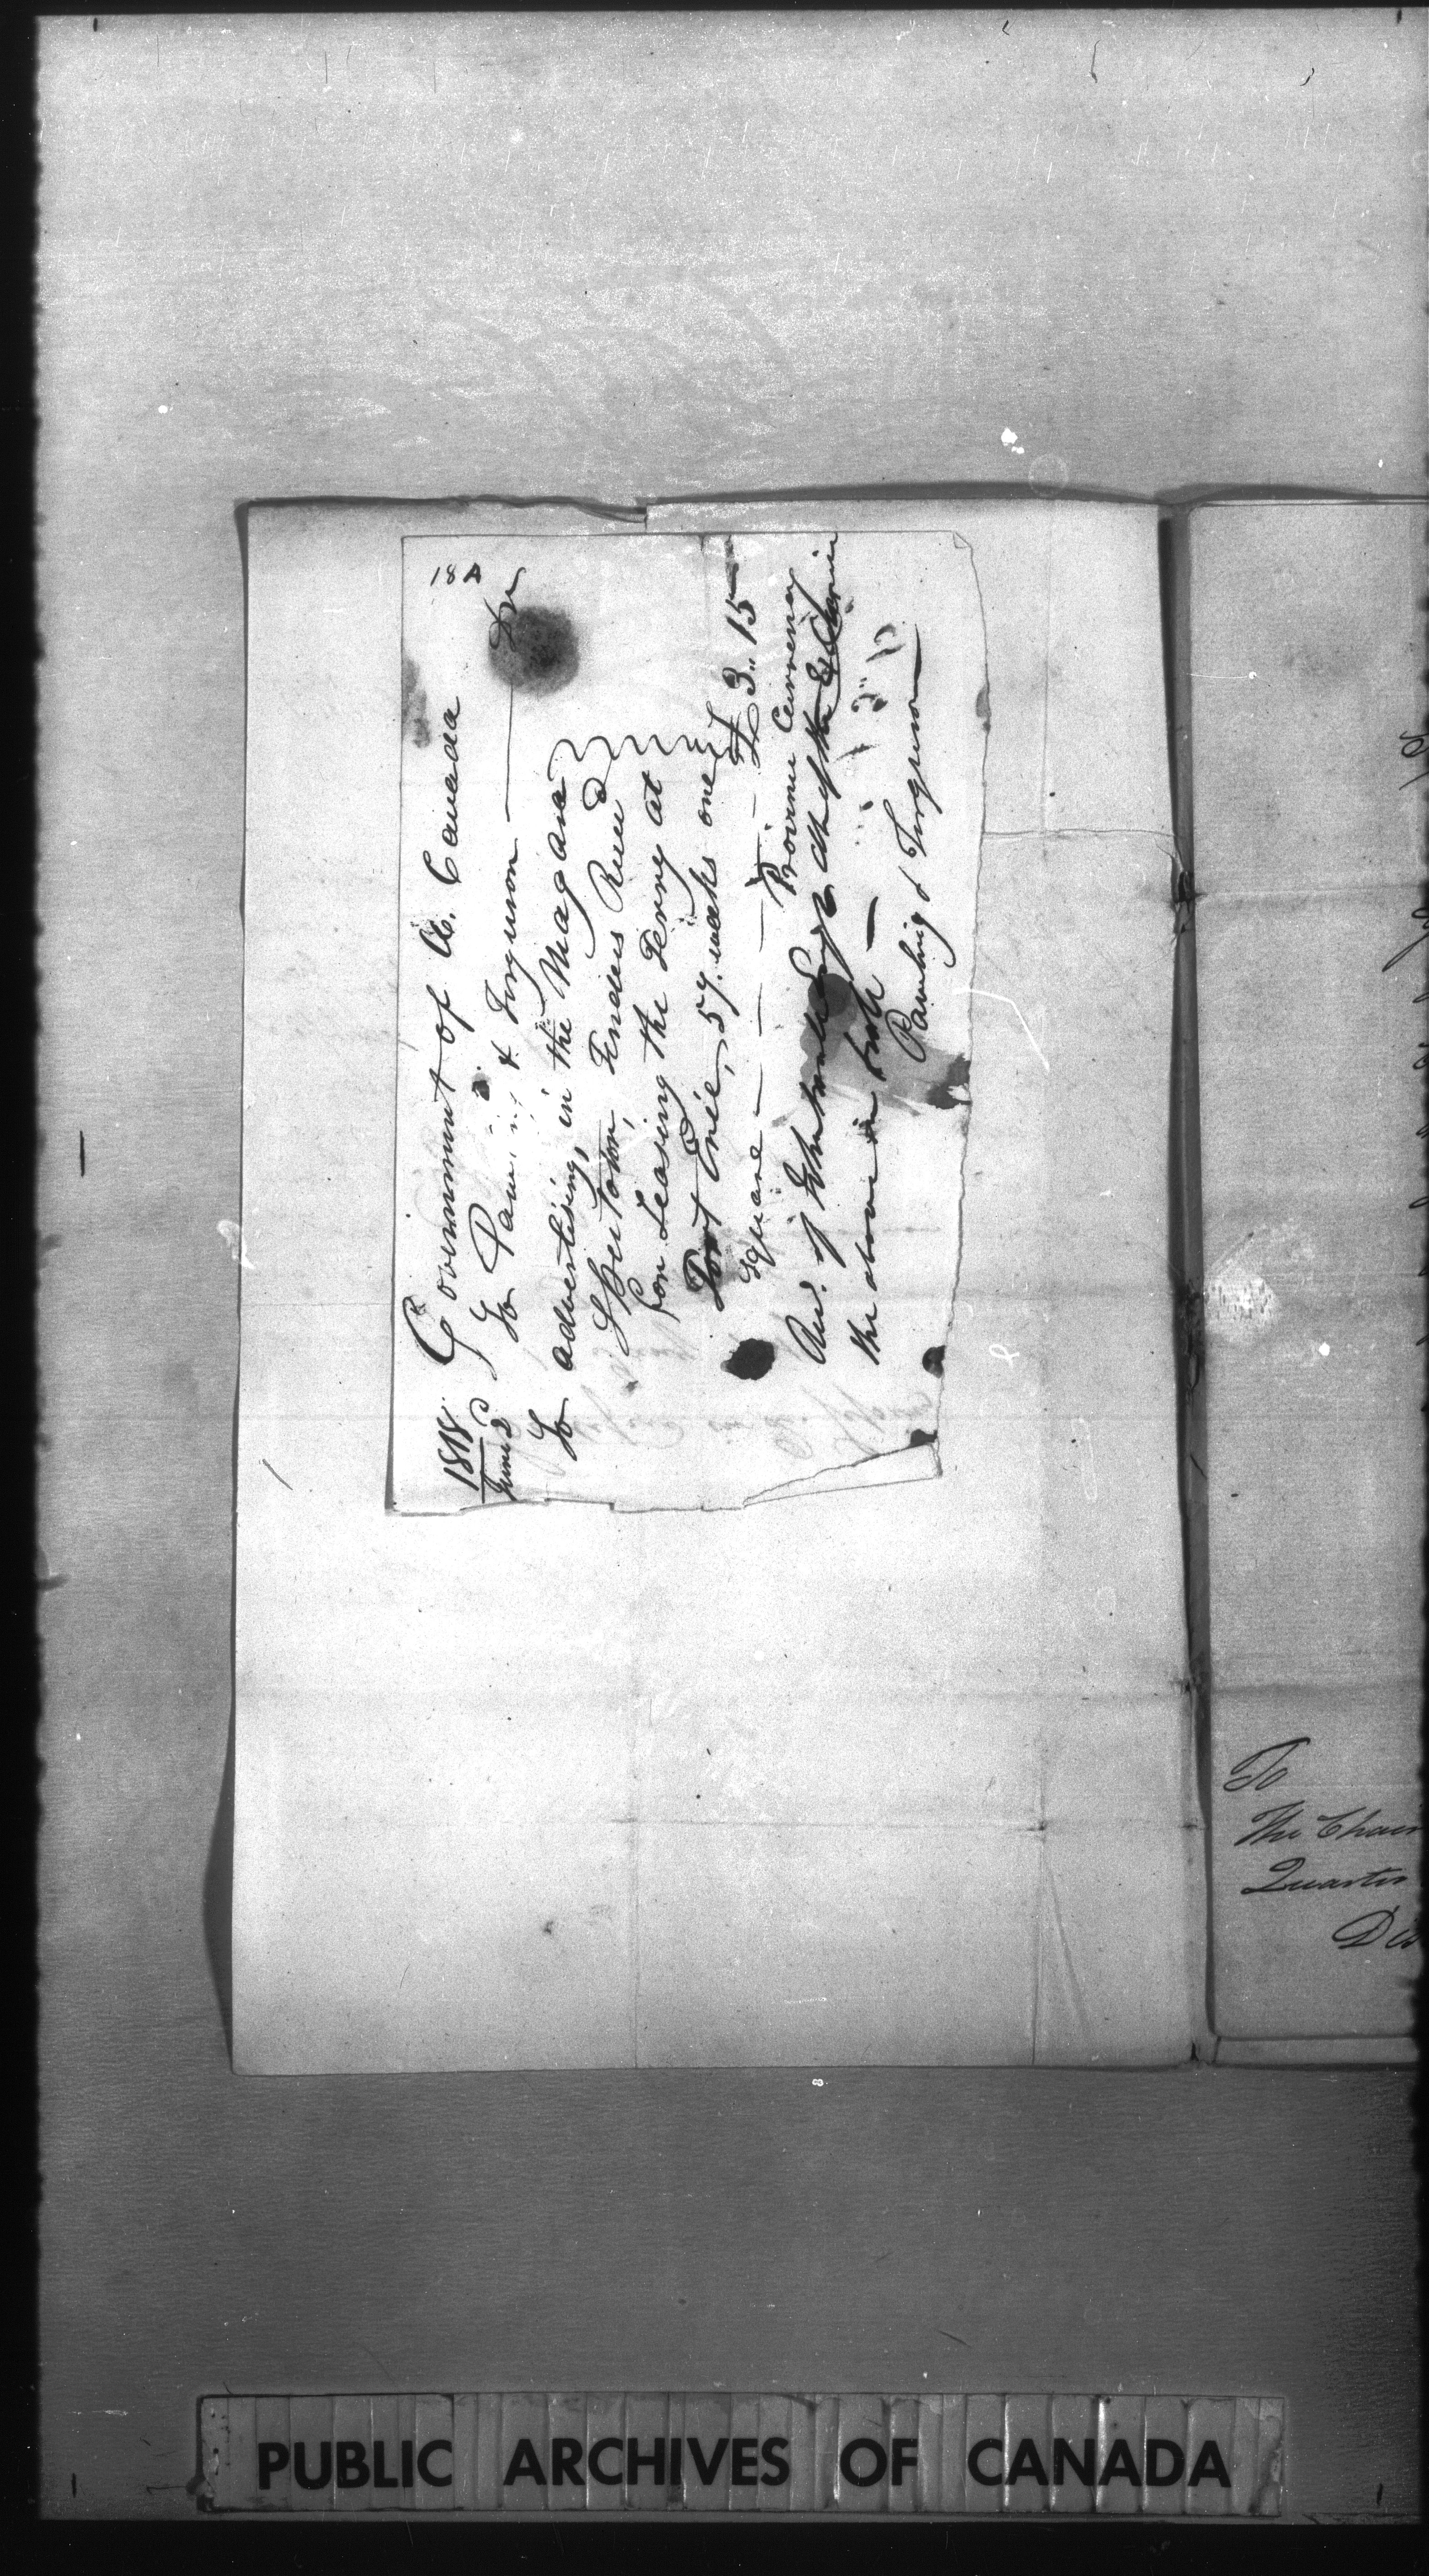 18A
1818 Government of U. Canada
June 2d To Pawling & Ferguson — Dr
To advertising, in the Magara
Spectator, Tenders Receivd
for Leasing the Ferry at
Fort Erie, 57. weeks one
square — — — — £3.. 15
Province Currency
Recd. of
the above in full —
Pawling & Ferguson
To
The Chair
Quarter
Dis
PUBLIC ARCHIVES OF CANADA